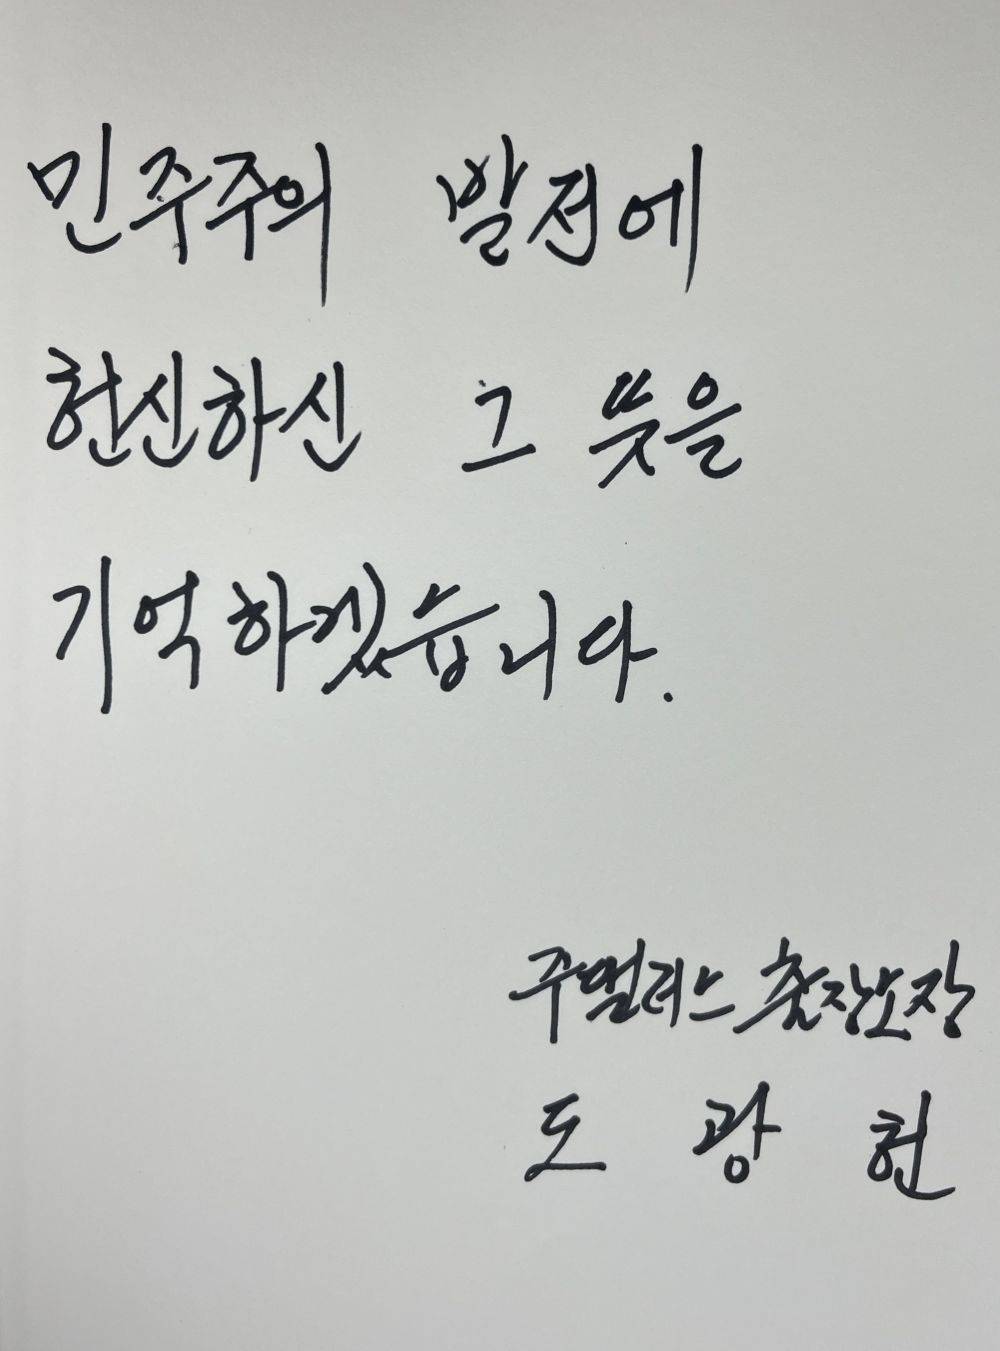 민주주의 발전에
헌신하신 그 뜻을
기억하겠습니다.
주멜러스 출장소장
도 광 헌